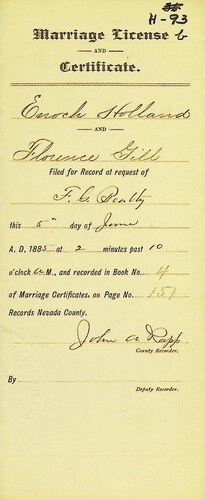 H-93
Marriage License &
AND
Certificate.
Enoch Holland
AND
Florence Gill
Filed for Record at request of
F. G. Beatty
this 5" day of June
A. D, 1885 at 2 minutes past 10
o'clock A M., and recorded in Book No. 4
of Marriage Certificates, on Page No. 151
Records Nevada County.
John A Rapp
County Recorder.
By
Deputy Recorder.